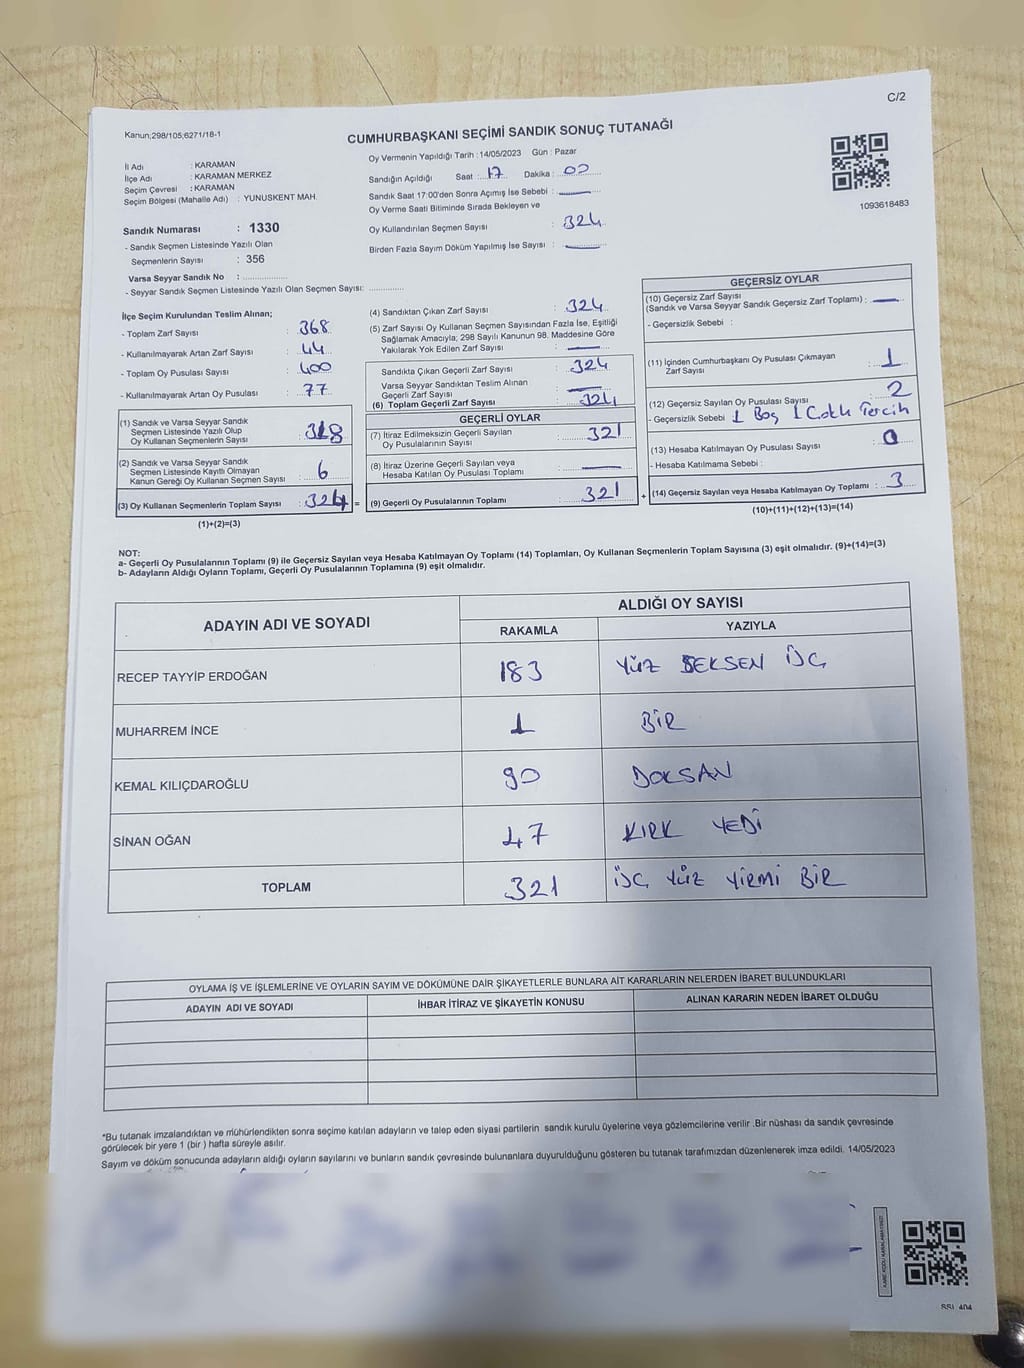 C/2
Kanun;298/105;6271/18-1
CUMHURBAŞKANI SEÇİMİ SANDIK SONUÇ TUTANAĞI
İl Adı : KARAMAN
İlçe Adı : KARAMAN MERKEZ
Seçim Çevresi : KARAMAN
Seçim Bölgesi (Mahalle Adı) : YUNUSKENT MAH.
Oy Vermenin Yapıldığı Tarih : 14/05/2023 Gün : Pazar
Sandığın Açıldığı Saat : 17 Dakika : 00
Sandık Saat 17:00'den Sonra Açımış İse Sebebi :
Oy Verme Saati Bitiminde Sırada Bekleyen ve
Oy Kullandırılan Seçmen Sayısı : 324
Birden Fazla Sayım Döküm Yapılmış İse Sayısı :
1093618483
Sandık Numarası : 1330
- Sandık Seçmen Listesinde Yazılı Olan
Seçmenlerin Sayısı : 356
Varsa Seyyar Sandık No :
- Seyyar Sandık Seçmen Listesinde Yazılı Olan Seçmen Sayısı:
İlçe Seçim Kurulundan Teslim Alınan;
- Toplam Zarf Sayısı : 368
- Kullanılmayarak Artan Zarf Sayısı : 44
- Toplam Oy Pusulası Sayısı : 400
- Kullanılmayarak Artan Oy Pusulası : 77
(1) Sandık ve Varsa Seyyar Sandık
Seçmen Listesinde Yazılı Olup
Oy Kullanan Seçmenlerin Sayısı : 318
(2) Sandık ve Varsa Seyyar Sandık
Seçmen Listesinde Kayıtlı Olmayan
Kanun Gereği Oy Kullanan Seçmen Sayısı : 6
(3) Oy Kullanan Seçmenlerin Toplam Sayısı : 324 =
(1)+(2)=(3)
(4) Sandıktan Çıkan Zarf Sayısı : 324
(5) Zarf Sayısı Oy Kullanan Seçmen Sayısından Fazla İse, Eşitliği
Sağlamak Amacıyla; 298 Sayılı Kanunun 98. Maddesine Göre
Yakılarak Yok Edilen Zarf Sayısı :
Sandıkta Çıkan Geçerli Zarf Sayısı : 324
Varsa Seyyar Sandıktan Teslim Alınan
Geçerli Zarf Sayısı :
(6) Toplam Geçerli Zarf Sayısı : 324
GEÇERLİ OYLAR
(7) İtiraz Edilmeksizin Geçerli Sayılan
Oy Pusulalarının Sayısı : 321
(8) İtiraz Üzerine Geçerli Sayılan veya
Hesaba Katılan Oy Pusulası Toplamı :
(9) Geçerli Oy Pusulalarının Toplamı : 321 +
GEÇERSİZ OYLAR
(10) Geçersiz Zarf Sayısı
(Sandık ve Varsa Seyyar Sandık Geçersiz Zarf Toplamı) :
- Geçersizlik Sebebi :
(11) İçinden Cumhurbaşkanı Oy Pusulası Çıkmayan
Zarf Sayısı : 1
(12) Geçersiz Sayılan Oy Pusulası Sayısı : 2
- Geçersizlik Sebebi : 1 Boş 1 Çoklu Tercih
(13) Hesaba Katılmayan Oy Pusulası Sayısı : 0
- Hesaba Katılmama Sebebi :
(14) Geçersiz Sayılan veya Hesaba Katılmayan Oy Toplamı : 3
(10)+(11)+(12)+(13)=(14)
NOT:
a- Geçerli Oy Pusulalarının Toplamı (9) ile Geçersiz Sayılan veya Hesaba Katılmayan Oy Toplamı (14) Toplamları, Oy Kullanan Seçmenlerin Toplam Sayısına (3) eşit olmalıdır. (9)+(14)=(3)
b- Adayların Aldığı Oyların Toplamı, Geçerli Oy Pusulalarının Toplamına (9) eşit olmalıdır.
ADAYIN ADI VE SOYADI
ALDIĞI OY SAYISI
RAKAMLA YAZIYLA
RECEP TAYYİP ERDOĞAN 183 YÜZ SEKSEN ÜÇ
MUHARREM İNCE 1 BİR
KEMAL KILIÇDAROĞLU 90 DOKSAN
SİNAN OĞAN 47 KIRK YEDİ
TOPLAM 321 ÜÇ YÜZ YİRMİ BİR
OYLAMA İŞ VE İŞLEMLERİNE VE OYLARIN SAYIM VE DÖKÜMÜNE DAİR ŞİKAYETLERLE BUNLARA AİT KARARLARIN NELERDEN İBARET BULUNDUKLARI
ADAYIN ADI VE SOYADI İHBAR İTİRAZ VE ŞİKAYETİN KONUSU ALINAN KARARIN NEDEN İBARET OLDUĞU
*Bu tutanak imzalandıktan ve mühürlendikten sonra seçime katılan adayların ve talep eden siyasi partilerin sandık kurulu üyelerine veya gözlemcilerine verilir .Bir nüshası da sandık çevresinde
görülecek bir yere 1 (bir ) hafta süreyle asılır.
Sayım ve döküm sonucunda adayların aldığı oyların sayılarını ve bunların sandık çevresinde bulunanlara duyurulduğunu gösteren bu tutanak tarafımızdan düzenlenerek imza edildi. 14/05/2023